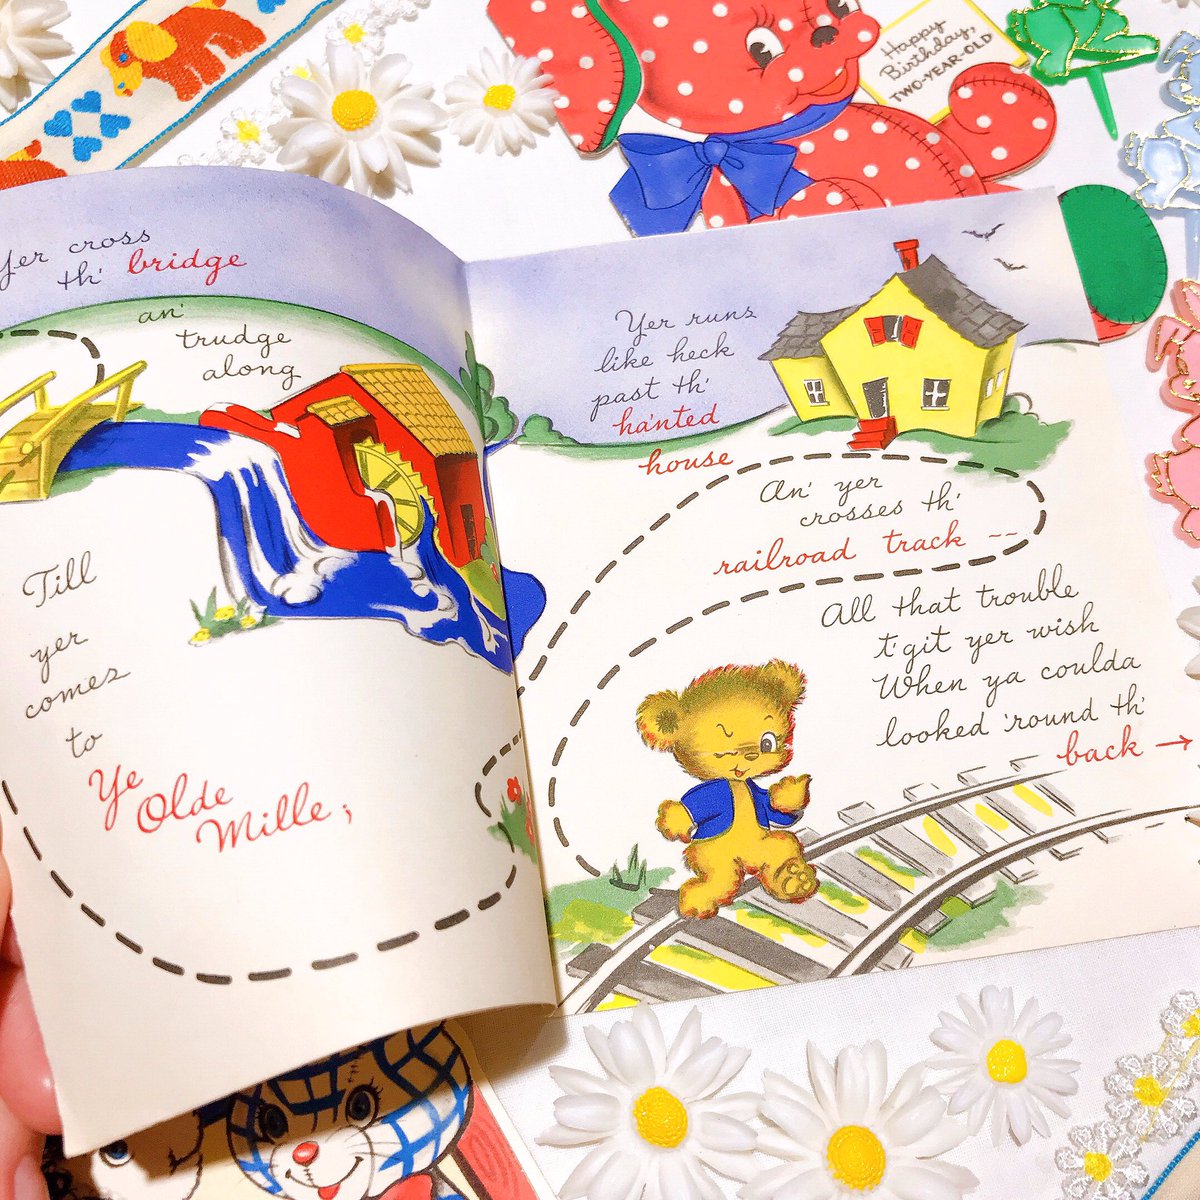 Happy
Birthday,
TWO-YEAR-OLD
Yer cross
th' bridge
an'
trudge
along
Till
yer
comes
to
Ye
Olde
Mille;
Yer runs
like heck
past th'
ha'nted
house
An' yer
crosses th'
railroad track --
All that trouble
t'git yer wish
When ya coulda
looked 'round th'
back →